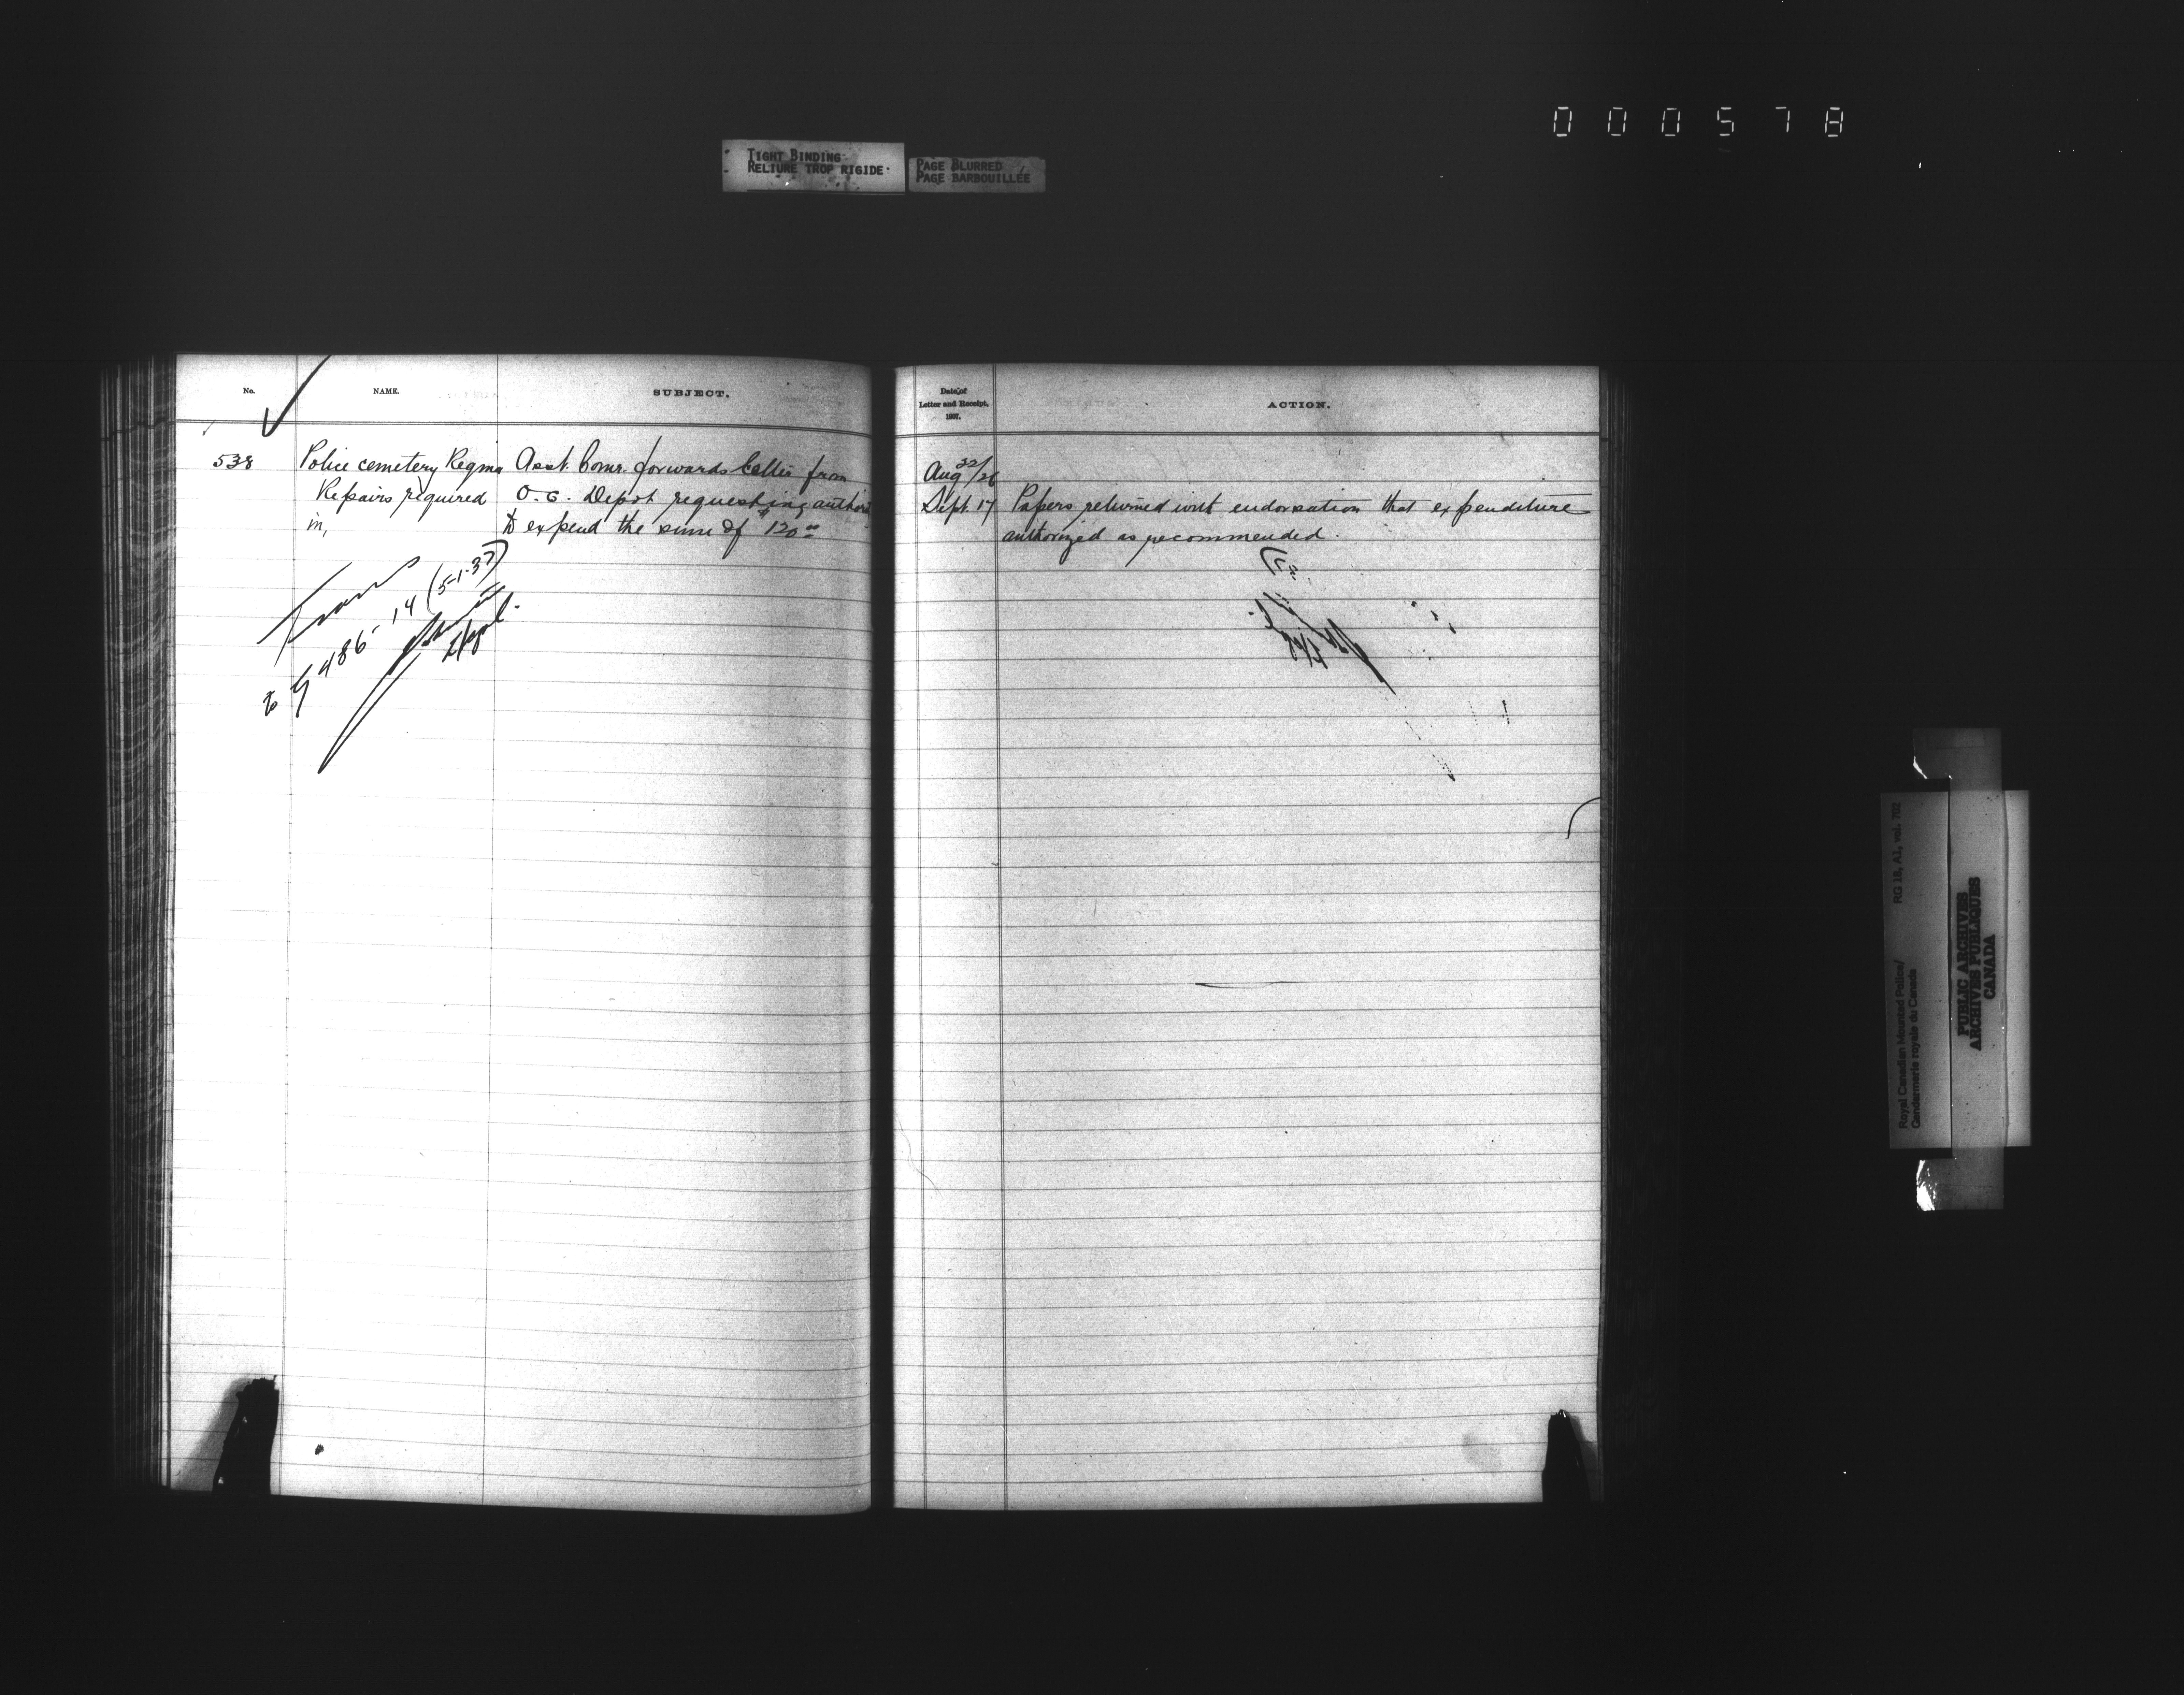 000578
TIGHT BINDING
RELIURE TROP RIGIDE
PAGE BLURRED
PAGE BARBOUILLÉE
No.
NAME.
SUBJECT.
538
Police cemetery Regina
Repairs required
in,
Asst. Comr. forwards letter from
O.C. Depot requesting authori
to expend the sum of $120.00
Trans
to G 486-14 (5-1-37)
Date of
Letter and Receipt,
1907.
ACTION.
Aug 22/26
Sept. 17 Papers returned with endorsation that expenditure
authorized as recommended.
Royal Canadian Mounted Police/
Gendarmerie royale du Canada
RG 18, A1, vol. 702
PUBLIC ARCHIVES
ARCHIVES PUBLIQUES
CANADA